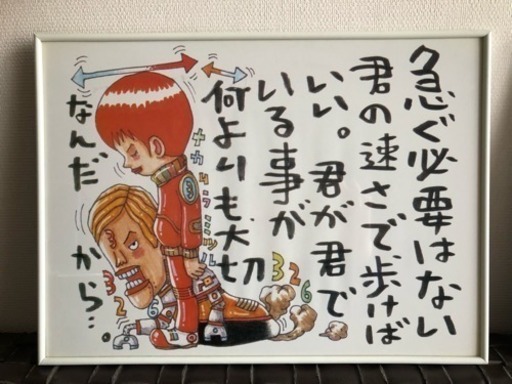 急ぐ必要はない
君の速さで歩けば
いい。君が君で
いる事が
何よりも大切
なんだ
から…。
ナカムラミツル
326
326